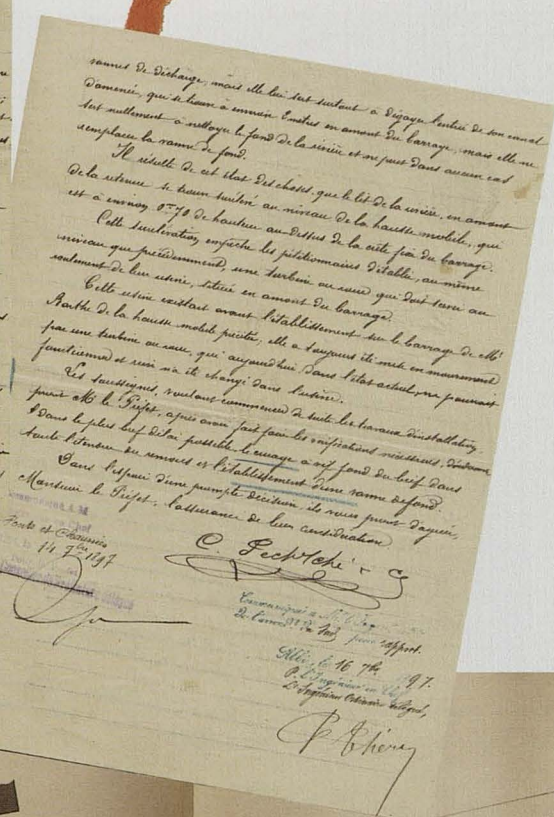 vannes de décharge, mais elle lui sert surtout à dégager l'entrée de son canal
d'amenée, qui se trouve à environ 8 mètres en amont du barrage, mais elle ne
sert nullement à nettoyer le fond de la rivière et ne peut dans aucun cas
remplacer la vanne de fond.
Il résulte de cet état des choses, que le lit de la rivière, en amont
de la retenue se trouve surélevé au niveau de la hausse mobile, qui
est à environ 0m70 de hauteur au-dessus de la crête fixe du barrage.
Cette surélévation empêche les pétitionnaires d'établir, au même
niveau que précédemment, une turbine ou roue qui doit servir au
roulement de leur usine, située en amont du barrage.
Cette usine existait avant l'établissement sur le barrage de Mr
Barthe de la hausse mobile précitée; elle a toujours été mise en mouvement
par une turbine ou roue, qui aujourd'hui, dans l'état actuel, ne pourrait
fonctionner et rien n'a été changé dans l'usine.
Les soussignés, voulant commencer de suite les travaux d'installation,
prient Mr le Préfet, après avoir fait faire les vérifications nécessaires, d'ordonner
dans le plus bref délai possible le curage à vif fond du bief dans
toute l'étendue du remous et l'établissement d'une vanne de fond.
Dans l'espoir d'une prompte décision, ils vous prient d'agréer,
Monsieur le Préfet, l'assurance de leur considération
Ponts et Chaussées
14 7bre 1897
C.
Communiqué à
de l'arrondt du Sud pour rapport.
Albi, le 16 7bre 97.
P. l'Ingénieur en Chef
L'Ingénieur Ordinaire délégué,
P. Théry